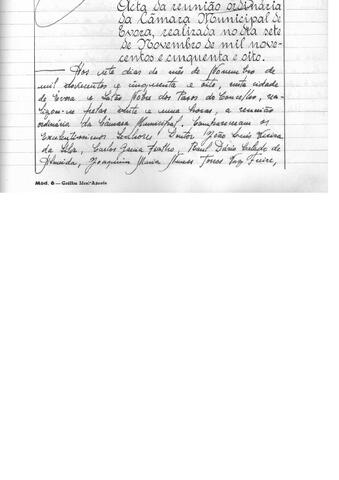 Acta da reunião ordinária
da Câmara Municipal de
Evora, realizada no dia sete
de Novembro de mil nove-
centos e cinquenta e oito.
Aos sete dias do mês de Novembro de
mil novecentos e cinquenta e oito, nesta cidade
de Evora e Salão Nobre dos Paços do Concelho, rea-
lizou-se pelas vinte e uma horas, a reunião
ordinária da Câmara Municipal. Compareceram os
Excelentíssimos Senhores Doutor João Luis Vieira
da Silva, Carlos Gama Freixo, Raul Dário Calado de
Almeida, Joaquim Maria Nunes Torres Vaz Freire,
Mód. 6 — Gráfica